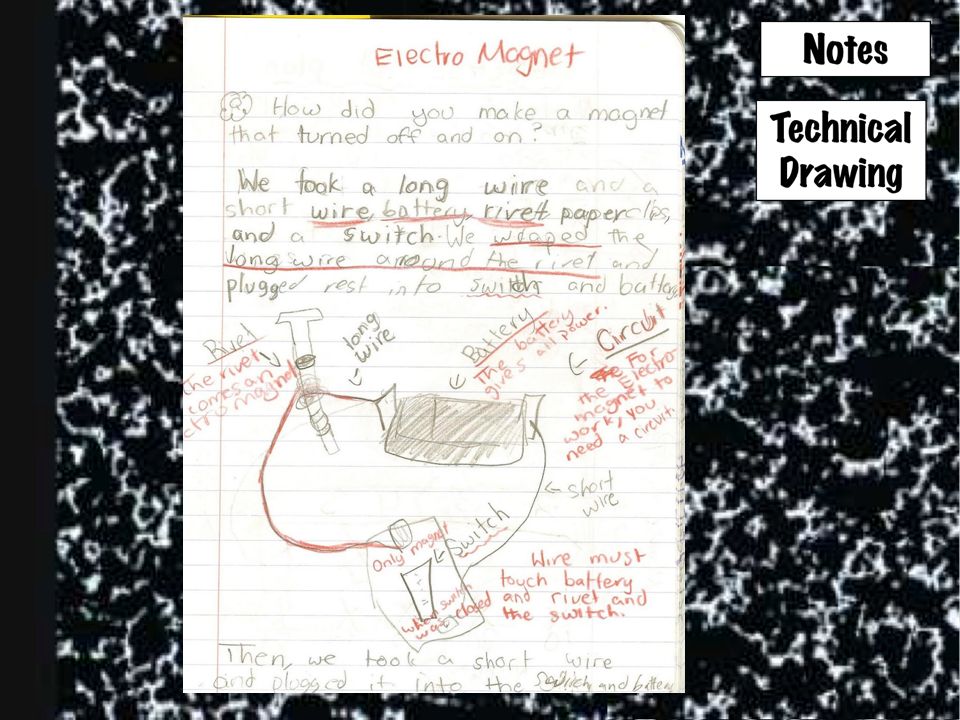 Notes
Technical
Drawing
Electro Magnet
How did you make a magnet
that turned off and on?
We took a long wire and a
short wire, battery, rivet paperclips,
and a switch. We wraped the
long wire around the rivet and
plugged rest into switch and battery
Rivet
The rivet
comes an
ctro magnet
long
wire
Battery
The battery
gives all power.
Circuit
For
the Electro
magnet to
work, you
need a circuit.
short
wire
Switch
Only magnet
when switch
was closed
Wire must
touch battery
and rivet and
the switch.
Then, we took a short wire
and plugged it into the switch and battery